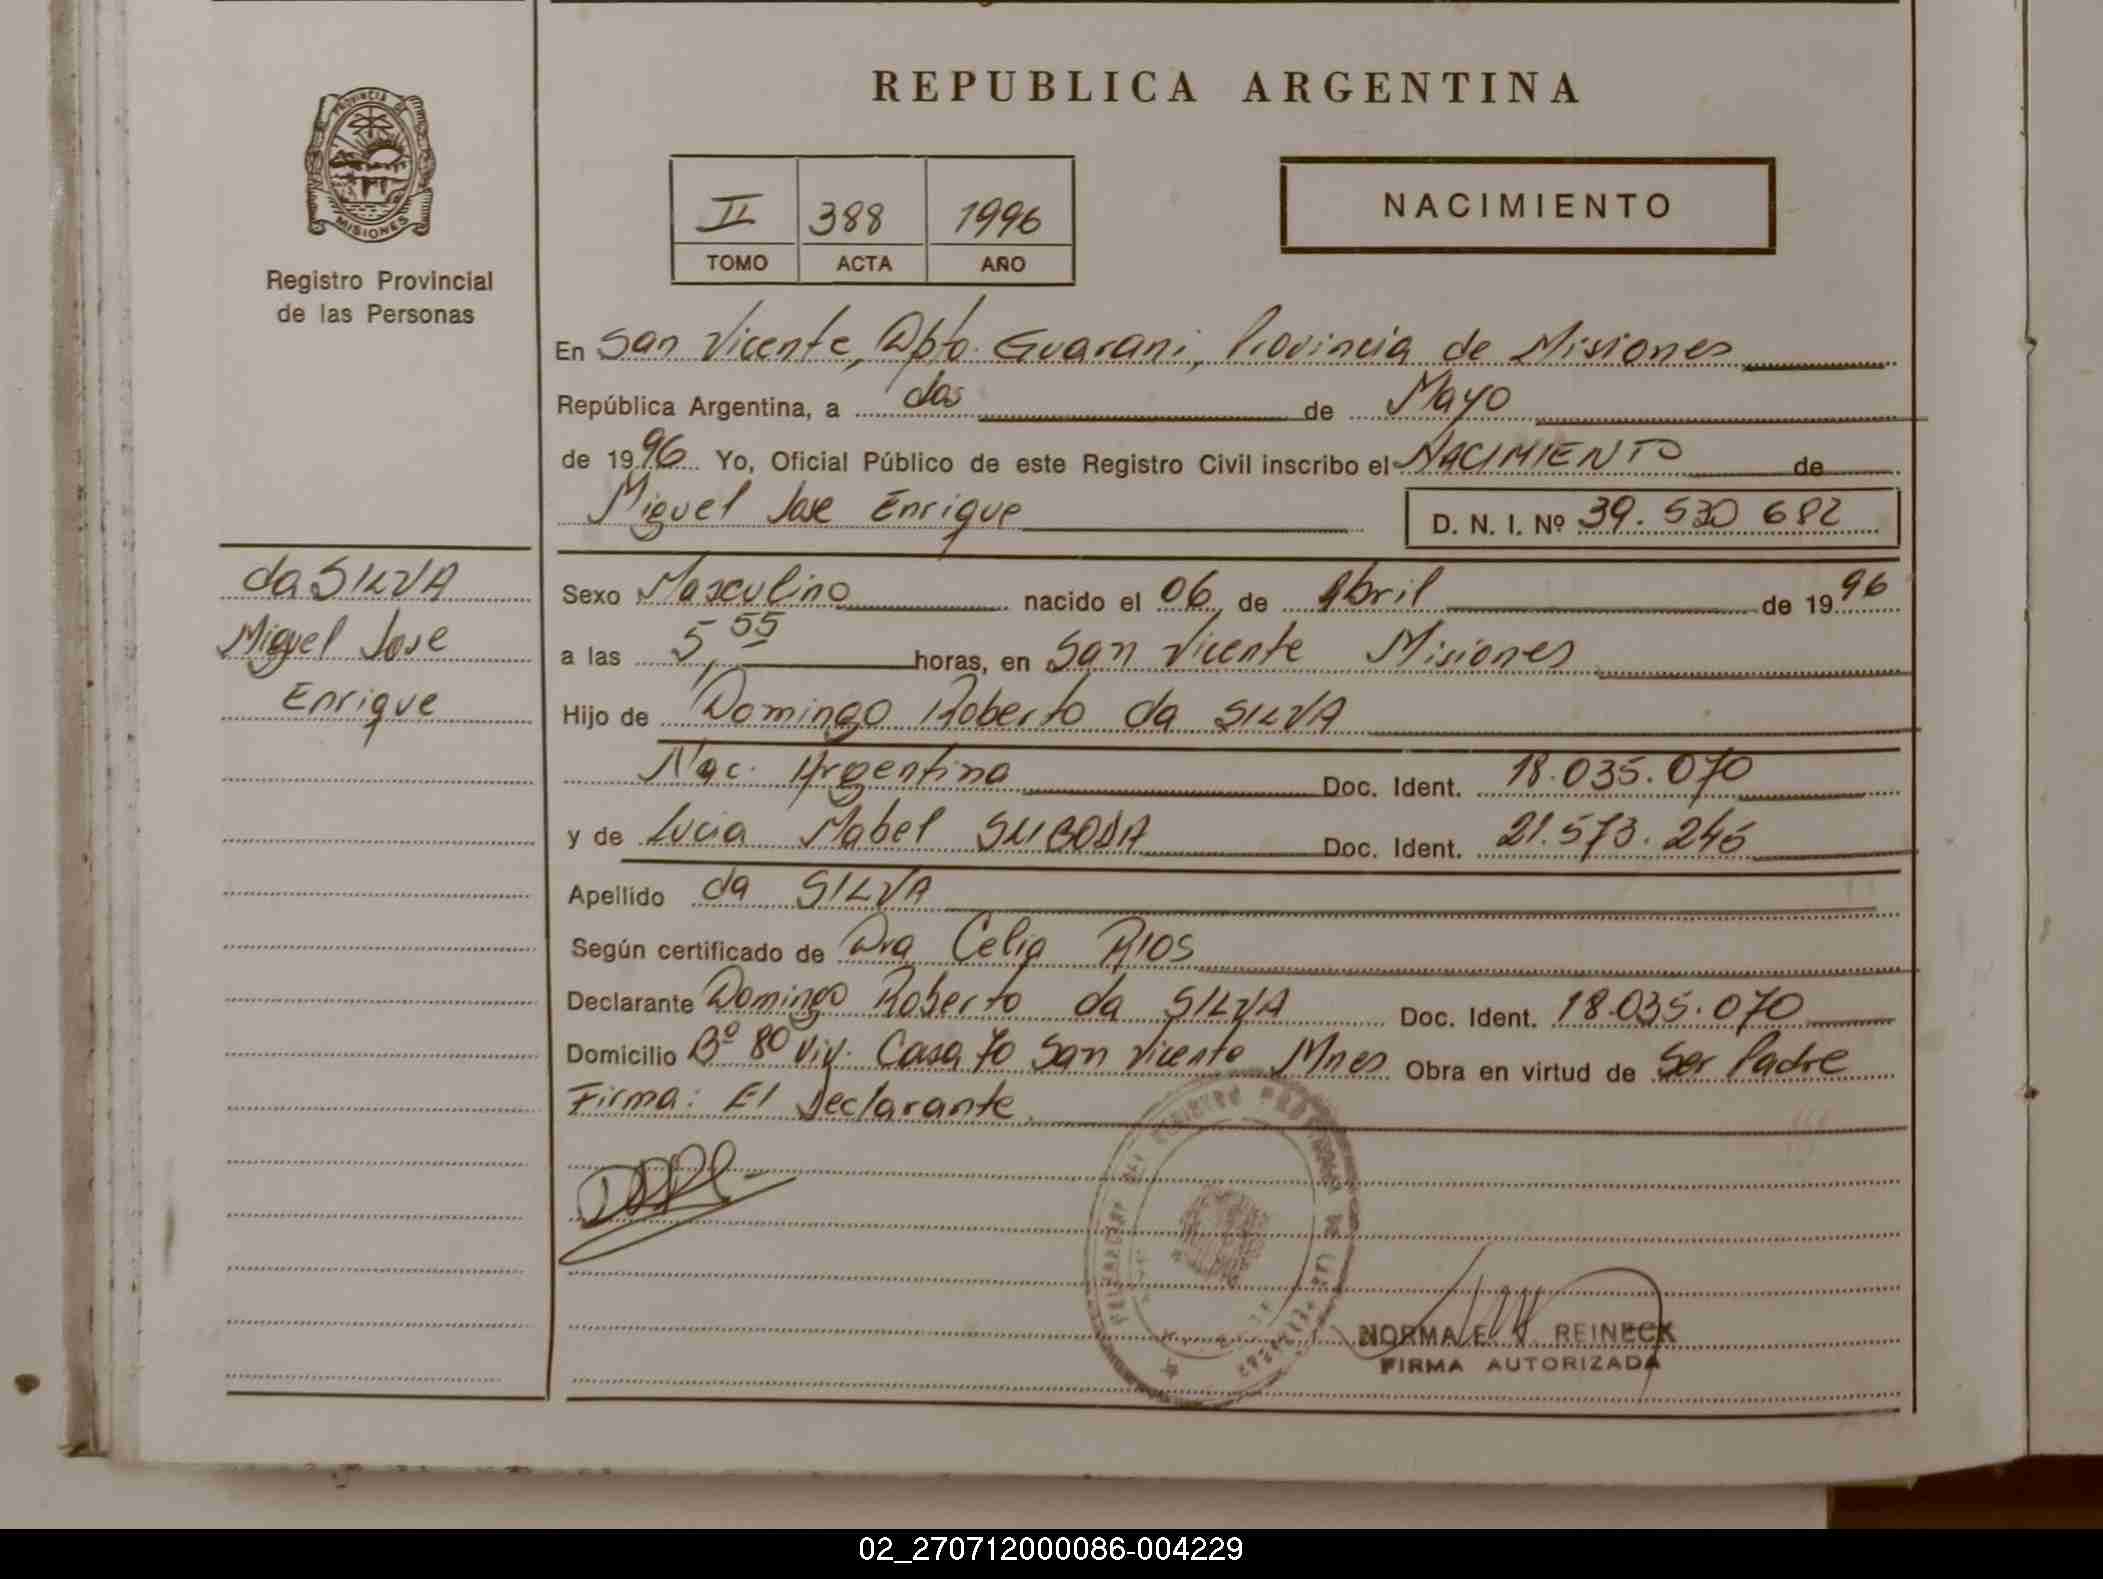 REPUBLICA ARGENTINA
PROVINCIA DE
MISIONES
Registro Provincial
de las Personas
II 388 1996
TOMO ACTA AÑO
NACIMIENTO
En San Vicente, Dpto. Guarani, Provincia de Misiones
República Argentina, a dos de Mayo
de 1996 Yo, Oficial Público de este Registro Civil inscribo el NACIMIENTO de
Miguel Jose Enrique D. N. I. Nº 39.530 682
da SILVA
Miguel Jose
Enrique
Sexo Masculino nacido el 06 de Abril de 1996
a las 5,55 horas, en San Vicente Misiones
Hijo de Domingo Roberto da SILVA
Nac. Argentina Doc. Ident. 18.035.070
y de Lucia Mabel Doc. Ident. 21.573.245
Apellido da SILVA
Según certificado de Dra Celia RIOS
Declarante Domingo Roberto da SILVA Doc. Ident. 18.035.070
Domicilio Bº 80 viv. Casa 70 San Vicente Mnes Obra en virtud de Ser Padre
Firma: El Declarante
NORMA E. V. REINECK
FIRMA AUTORIZADA
02_270712000086-004229